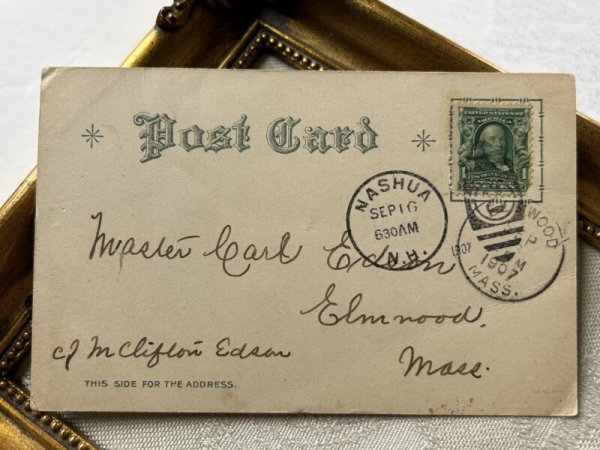 * Post Card *
UNITED STATES OF AMERICA
1
NASHUA
SEP 16
630AM
N.H.
1907
WOOD
P
M
1907
MASS.
Master Carl Edson
Elmwood,
Mass.
c/ M Clifton Edson
THIS SIDE FOR THE ADDRESS.